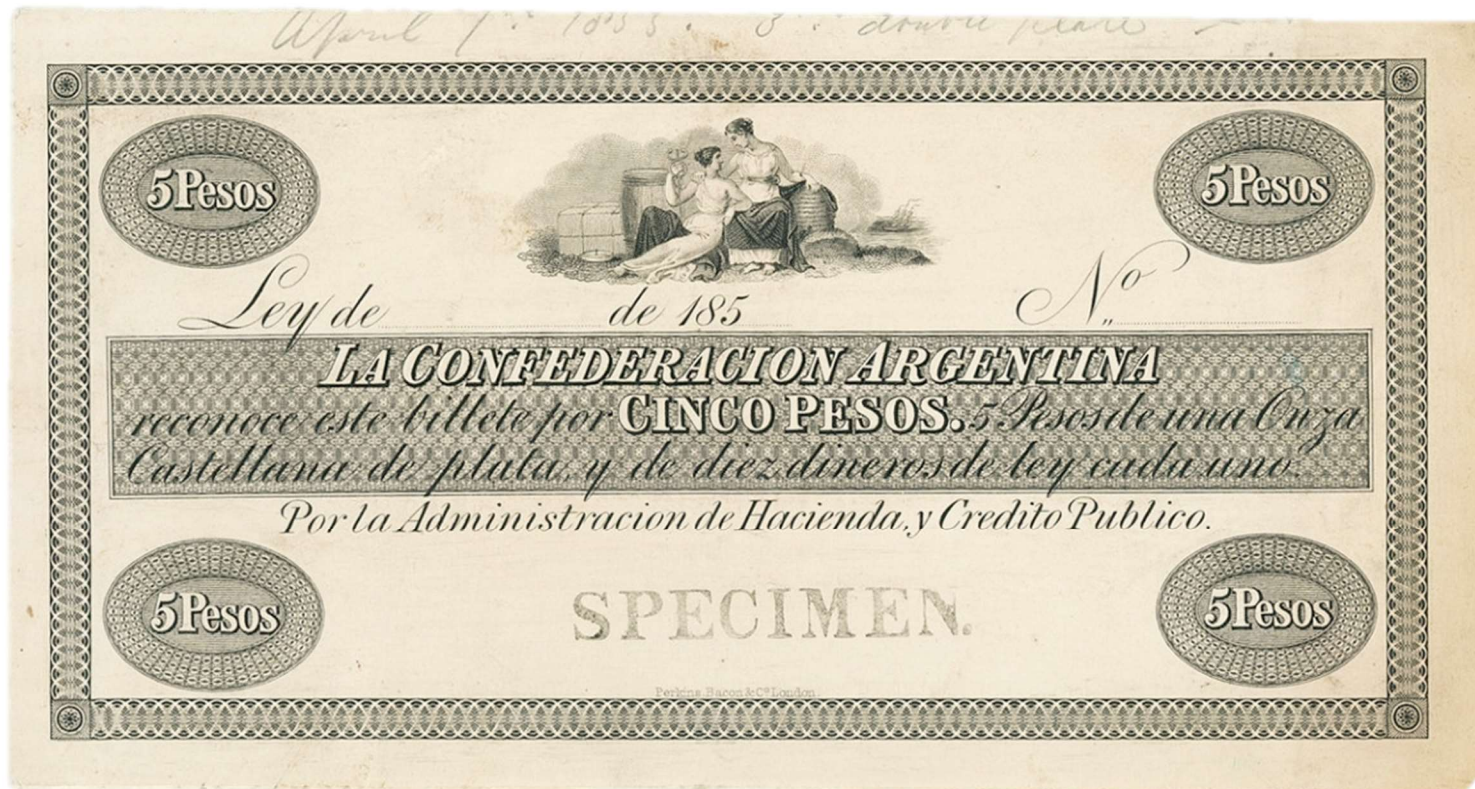 April
5 Pesos
5 Pesos
Ley de de 185 Nº
LA CONFEDERACION ARGENTINA
reconoce este billete por CINCO PESOS. 5 Pesos de una Onza
Castellana de plata, y de diez dineros de ley cada uno.
Por la Administracion de Hacienda, y Credito Publico.
5 Pesos
5 Pesos
SPECIMEN.
Perkins, Bacon & Co London.